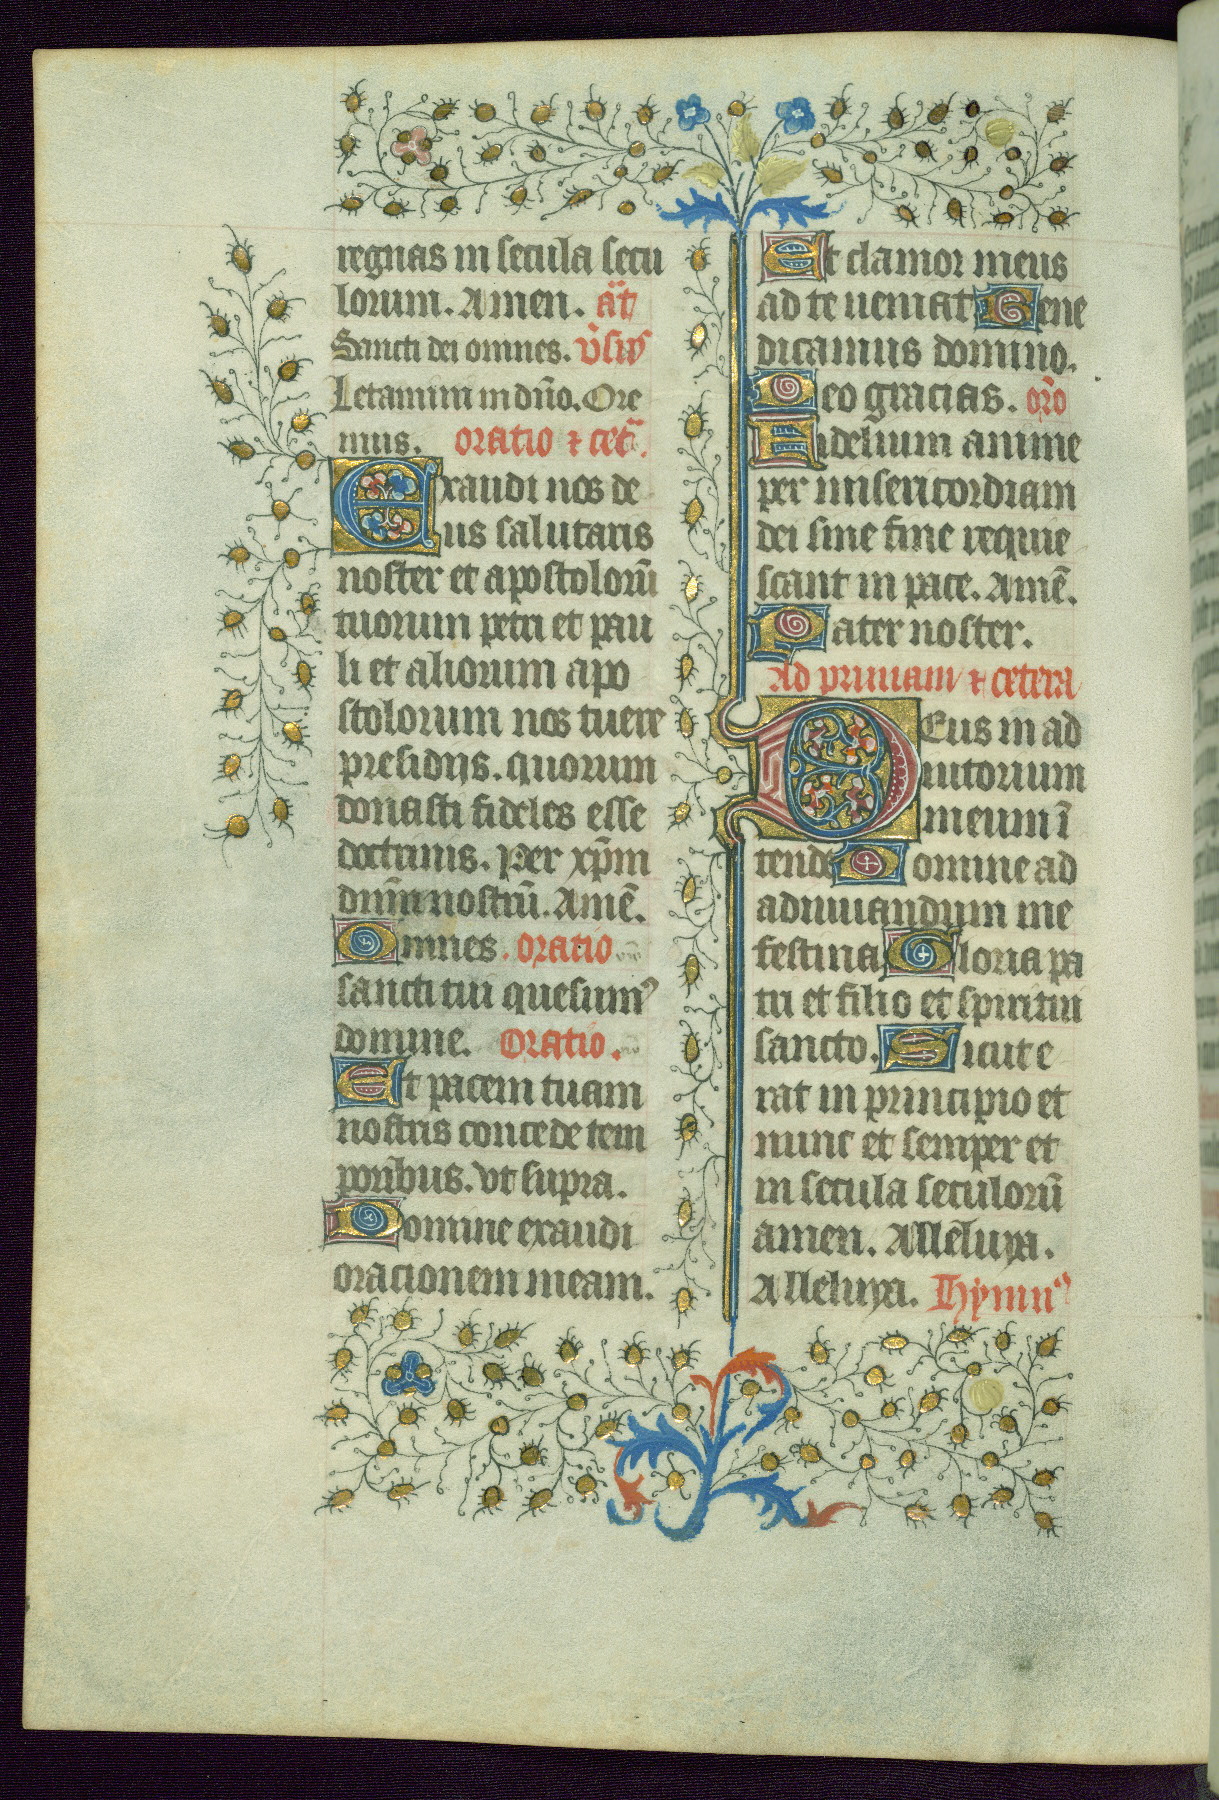 regnas in secula secu
lorum. Amen. añt
Sancti dei omnes. v̄sus
Letamini in dño. Ore
mus. oratio ⁊ cet̄.
Exaudi nos de
us salutaris
noster et apostolorū
tuorum petri et pau
li et aliorum apo
stolorum nos tuere
presidijs. quorum
donasti fideles esse
doctrinis. Per xp̄m
dn̄m nostrū. Amē.
Omnes. oratio
sancti tui quesumꝰ
domine. Oratio.
Et pacem tuam
nostris concede tem
poribus. vt supra.
Domine exaudi
oracionem meam.
Et clamor meus
ad te ueniat Bene
dicamus domino.
Deo gracias. or̄o
Fidelium anime
per misericordiam
dei sine fine requie
scant in pace. Amē.
Pater noster.
Ad primam ⁊ cetera
Deus in ad
iutorium
meum ī
tende Domine ad
adiuuandum me
festina Gloria pa
tri et filio et spiritui
sancto. Sicut e
rat in principio et
nunc et semper et
in secula seculorū
amen. Alleluya.
Alleluya. Hymnꝰ